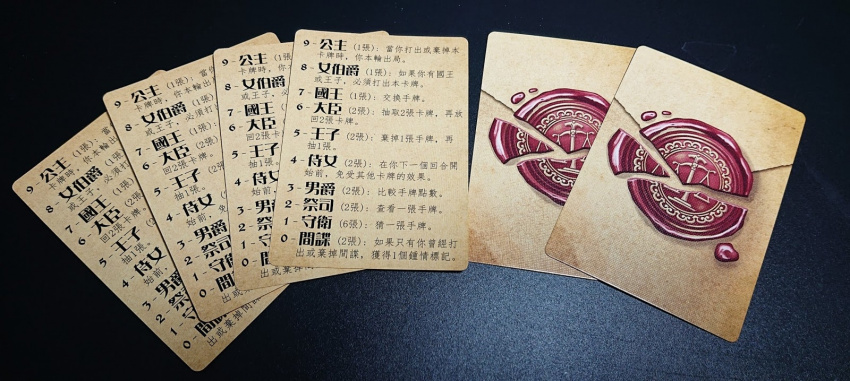 9-公主 (1張): 當你打出或棄掉本
卡牌時，你本輪出局。
8-女伯爵 (1張): 如果你有國王
或王子，必須打出本卡牌。
7-國王 (1張): 交換手牌。
6-大臣 (2張): 抽取2張卡牌，再放
回2張卡牌。
5-王子 (2張): 棄掉1張手牌，再
抽1張。
4-侍女 (2張): 在你下一個回合開
始前，免受其他卡牌的效果。
3-男爵 (2張): 比較手牌點數。
2-祭司 (2張): 查看一張手牌。
1-守衛 (6張): 猜一張手牌。
0-間諜 (2張): 如果只有你曾經打
出或棄掉間諜，獲得1個鍾情標記。
9-公主 (1張):
卡牌時，你
8-女伯爵
或王子，
7-國王
6-大臣
回2張
5-王子
抽1張。
4-侍女
始前
3-男爵
2-祭司
1-守衛
0-間諜
出或棄掉
9-公主 (1張): 當
卡牌時，你本
8-女伯爵 (1
或王子，必須打
7-國王
6-大臣
回2張卡
5-王子
抽1張。
4-侍女
始前，
3-男爵
2-祭司
1-守衛
0-間諜
出或棄掉間
9-公主 (1張): 當
卡牌時，你本
8-女伯爵 (1
或王子，必須
7-國王 (1
6-大臣 (2
回2張卡牌。
5-王子
抽1張。
4-侍女
始前，免
3-男爵
2-祭司
1-守衛
0-間諜
出或棄掉間諜